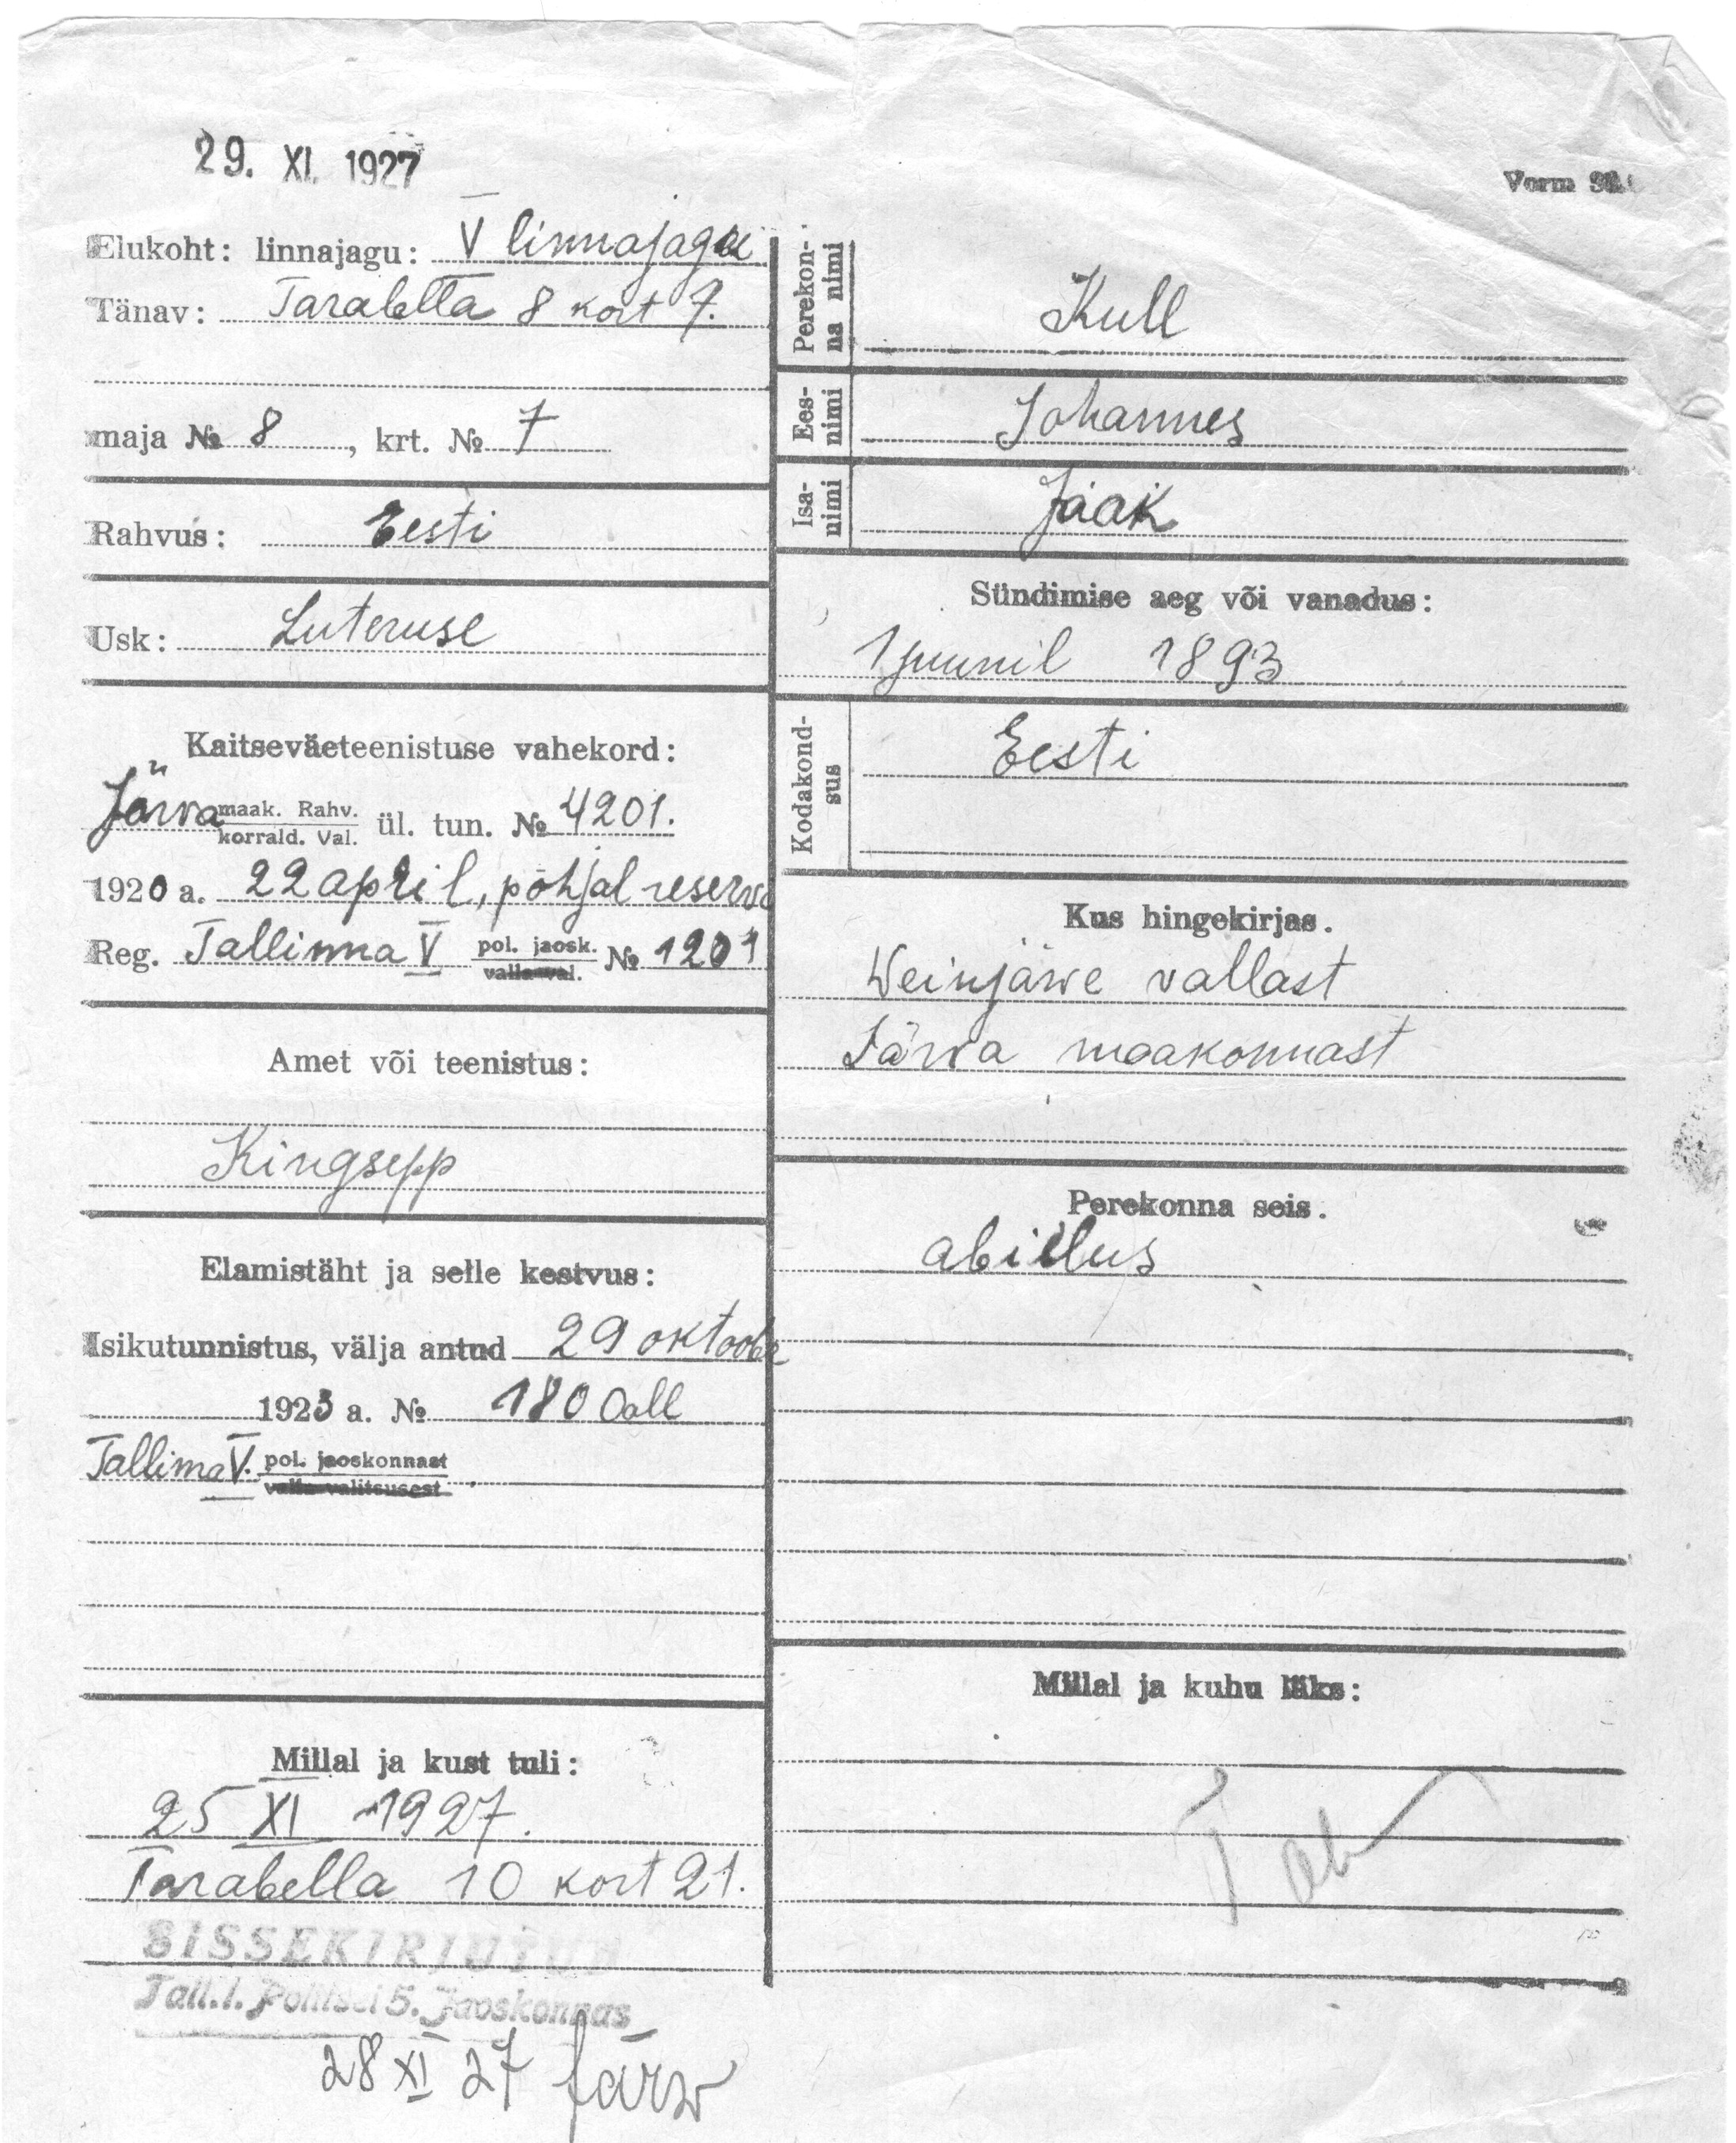 29. XI. 1927
Vorm
Elukoht: linnajagu: V linnajagu
Tänav: Tarabella 8 kort 7.
maja № 8, krt. № 7
Rahvus: Eesti
Usk: Luteruse
Kaitseväeteenistuse vahekord:
Järva maak. Rahv. korrald. Val. ül. tun. № 4201.
1920 a. 22 april, põhjal reserv
Reg. Tallinna V pol. jaosk. valla val. № 1201
Amet või teenistus:
Kingsepp
Elamistäht ja selle kestvus:
Isikutunnistus, välja antud 29 oktoobr
1923 a. № 180 all
Tallinna V. pol. jaoskonnast valla valitsusest.
Millal ja kust tuli:
25 XI 1927.
Tarabella 10 kort 21.
SISSEKIRJUTUD
Tall.l. Politsei 5. Jaoskonnas
28 XI 27
Perekon-
na nimi
Kull
Ees-
nimi
Johannes
Isa-
nimi
Jaak
Sündimise aeg või vanadus:
1 juunil 1893
Kodakond-
sus
Eesti
Kus hingekirjas.
Weinjärve vallast
Järva maakonnast
Perekonna seis.
abielus
Millal ja kuhu läks: